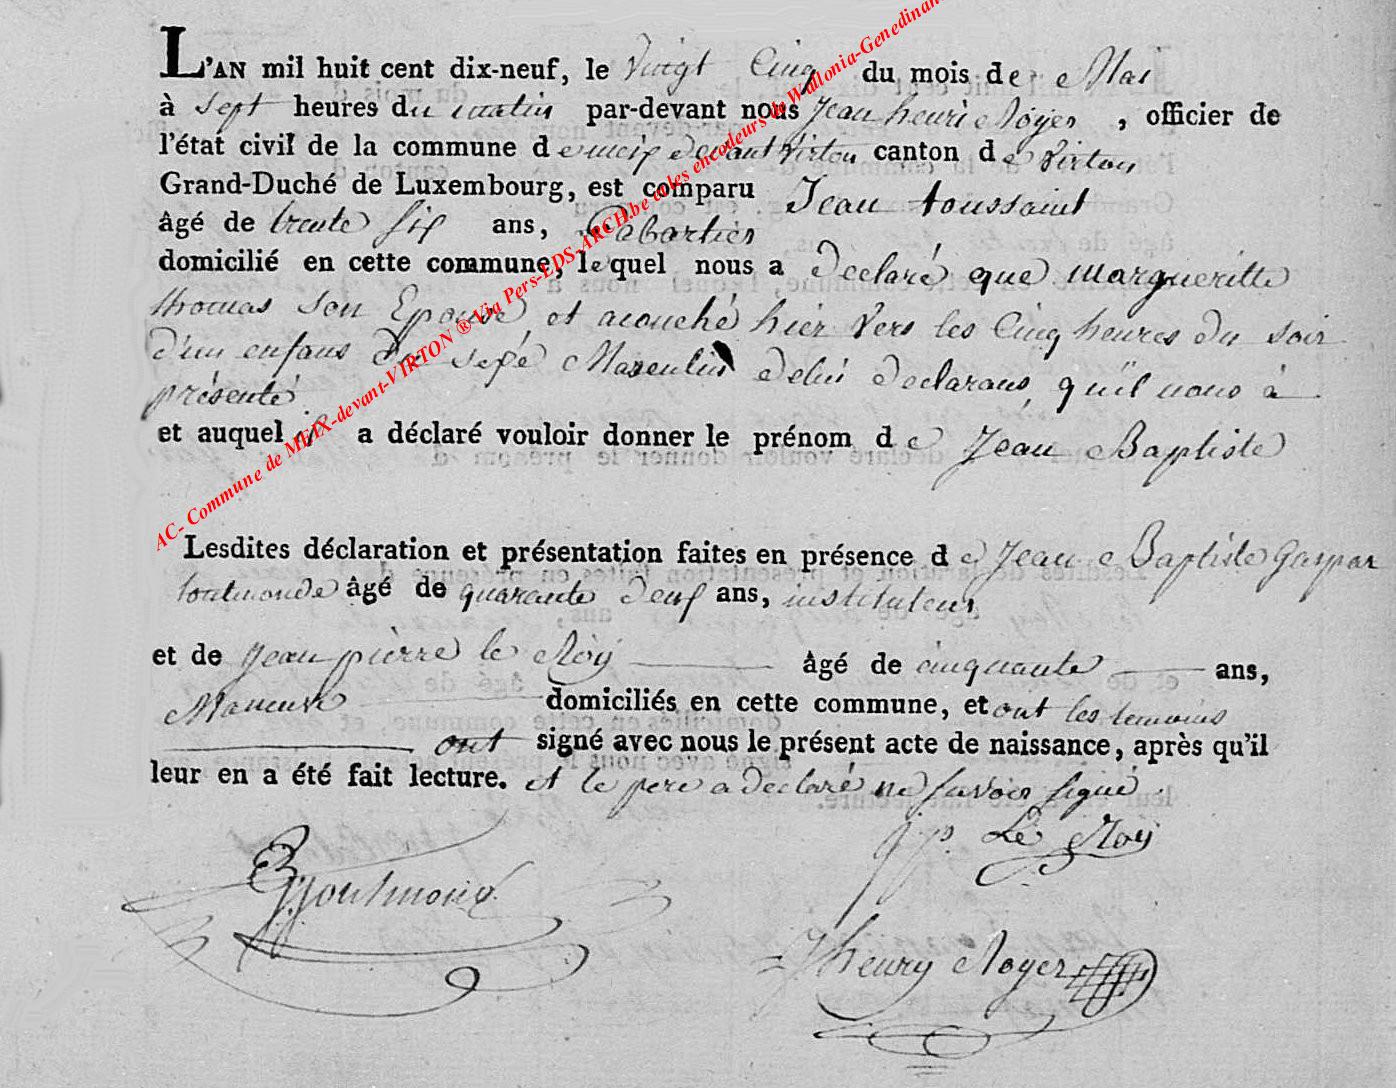 L'AN mil huit cent dix-neuf, le Vingt Cinq du mois de Mai
à Sept heures du matin par-devant nous Jean henri Noyer, officier de
l'état civil de la commune de meix devant Virton canton de Virton
Grand-Duché de Luxembourg, est comparu Jean toussaint
âgé de trente six ans, Cabartier
domicilié en cette commune, lequel nous a Declaré que margueritte
thomas Son Epouse et acouché hier Vers les Cinq heures du soir
d'un enfans du sexe Masculin delui declarans, qu'il nous à
présenté
et auquel il a déclaré vouloir donner le prénom de Jean Baptiste
Lesdites déclaration et présentation faites en présence de Jean Baptiste Gaspar
toutmonde âgé de quarante deux ans, instituteur
et de Jean pièrre le Roÿ âgé de cinquante ans,
domiciliés en cette commune, et ont les temoins
ont signé avec nous le présent acte de naissance, après qu'il
leur en a été fait lecture. et le pere a declaré ne savoir signé.
J p. Le Roÿ
Toutmond
Jhenry Noyer
AC- Commune de MEIX-devant-VIRTON ® Via Pers-EDS-ARCH.be et les encodeurs de Wallonia-Genedinan